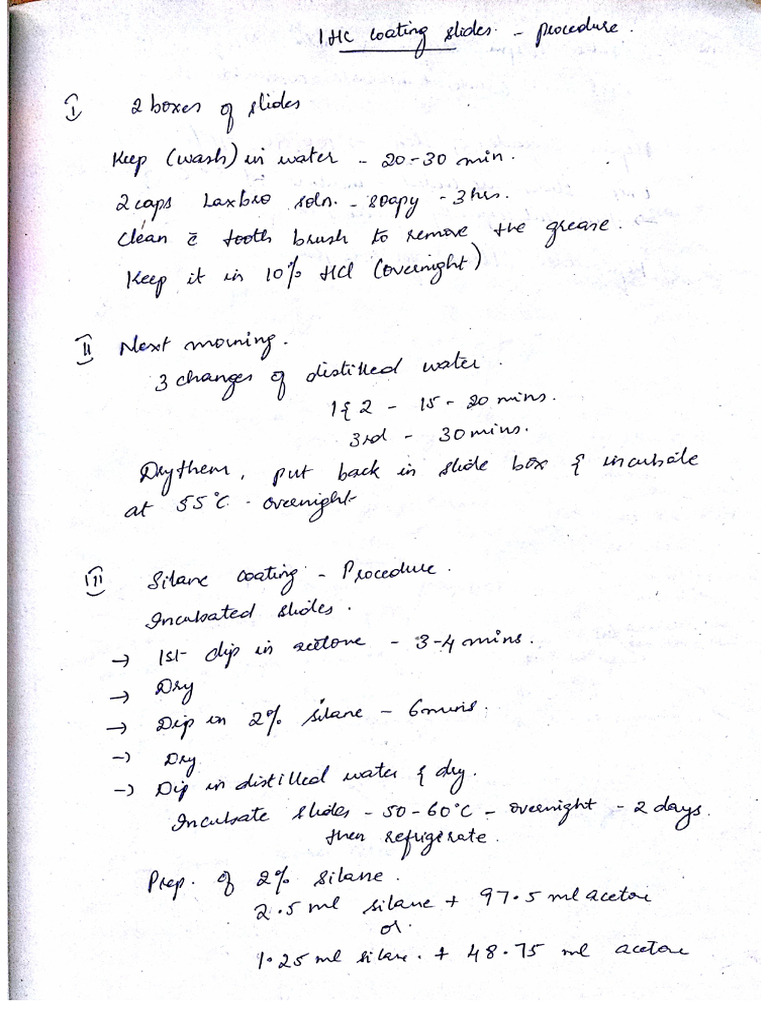 IHC coating slides - procedure.
I 2 boxes of slides
Keep (wash) in water - 20-30 min.
2 caps Laxbro soln. - soapy - 3 hrs.
Clean c̄ tooth brush to remove the grease.
Keep it in 10% HCl (overnight)
II Next morning.
3 changes of distilled water.
1 & 2 - 15 - 20 mins.
3rd - 30 mins.
Dry them, put back in slide box & incubate
at 55°C - overnight
III Silane coating - Procedure.
Incubated slides.
→ 1st dip in acetone - 3-4 mins.
→ Dry
→ Dip in 2% silane - 6 mins.
→ Dry
→ Dip in distilled water & dry.
Incubate slides - 50-60°C - overnight - 2 days.
then refrigerate.
Prep. of 2% silane.
2.5 ml silane + 97.5 ml acetone
or.
1.25 ml silane. + 48.75 ml acetone